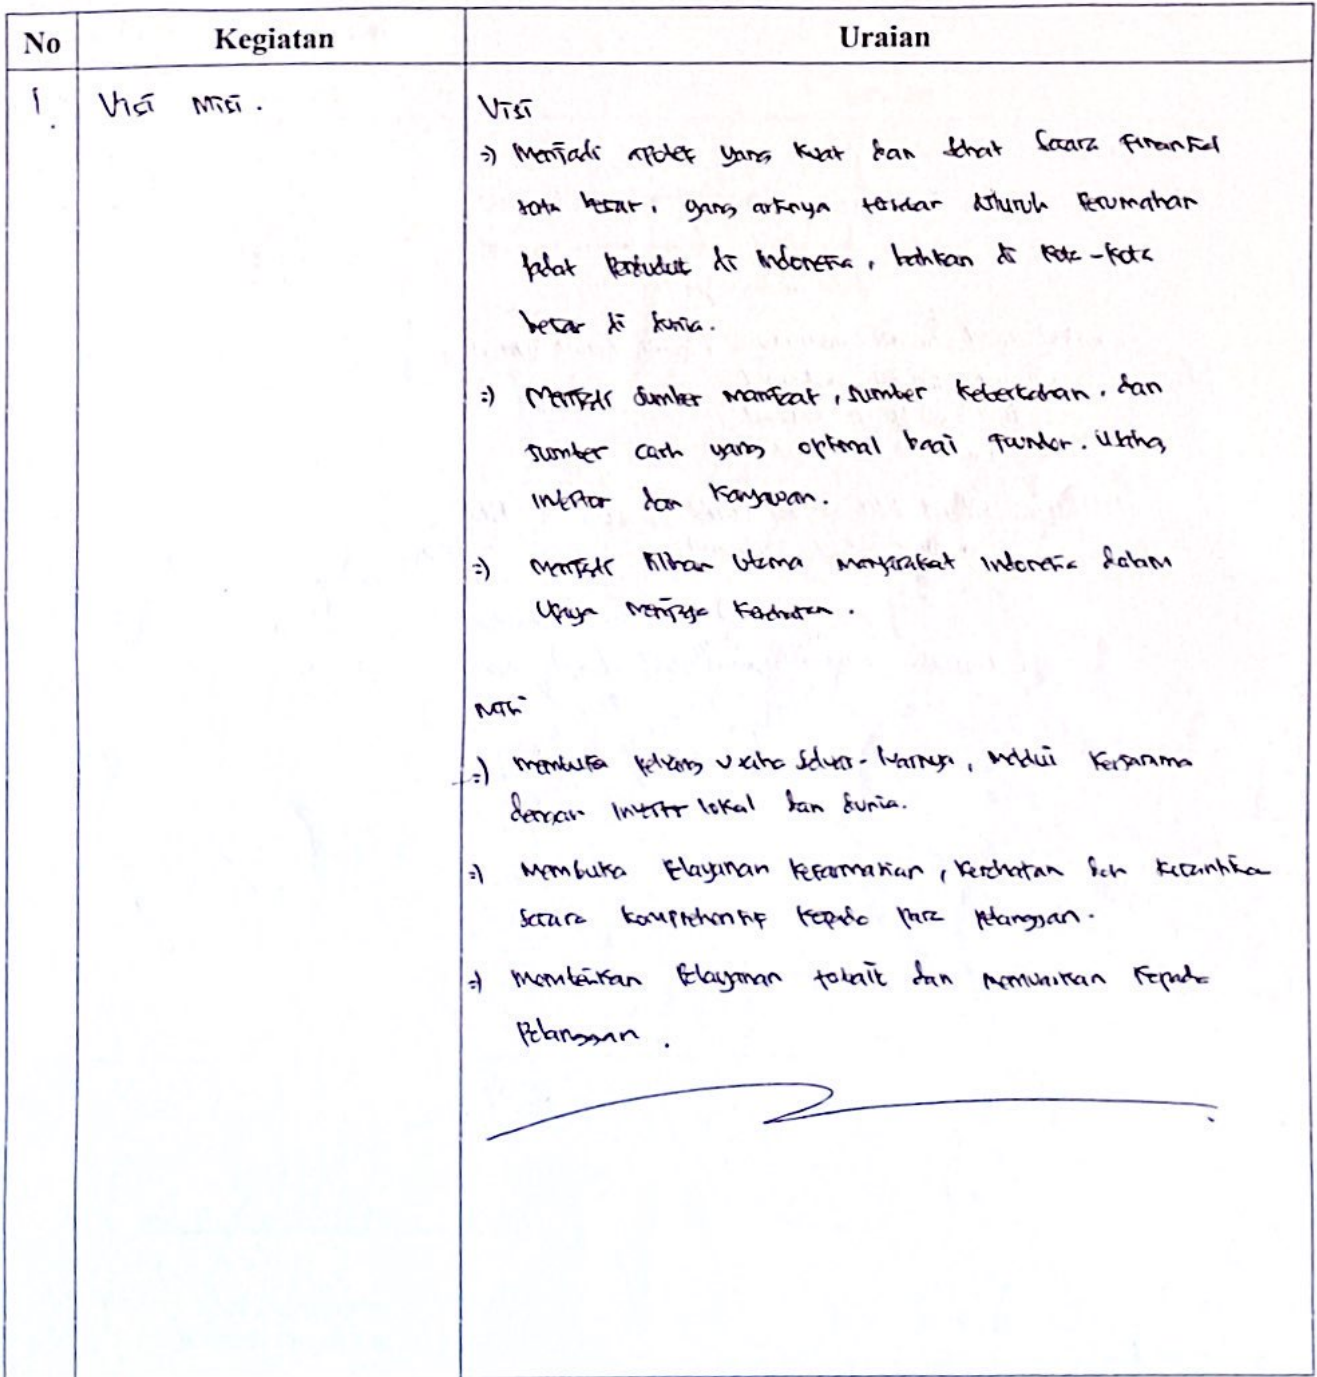 No Kegiatan Uraian
1. Visi Misi. Visi
=) Menjadi apotek yang kuat dan sehat secara finansial
serta besar, yang artinya tersebar diseluruh perumahan
padat penduduk di Indonesia, bahkan di kota-kota
besar di dunia.
=) Menjadi sumber manfaat, sumber keberkahan, dan
sumber cash yang optimal bagi founder,
investor dan karyawan.
=) Menjadi pilihan utama masyarakat Indonesia dalam
upaya menjaga kesehatan.
Misi
=) Membuka peluang usaha seluas-luasnya, melalui kerjasama
dengan investor lokal dan dunia.
=) Membuka pelayanan kefarmasian, kesehatan dan kecantika
secara komprehensif kepada para pelanggan.
=) Memberikan pelayanan terbaik dan memuaskan kepada
pelanggan.